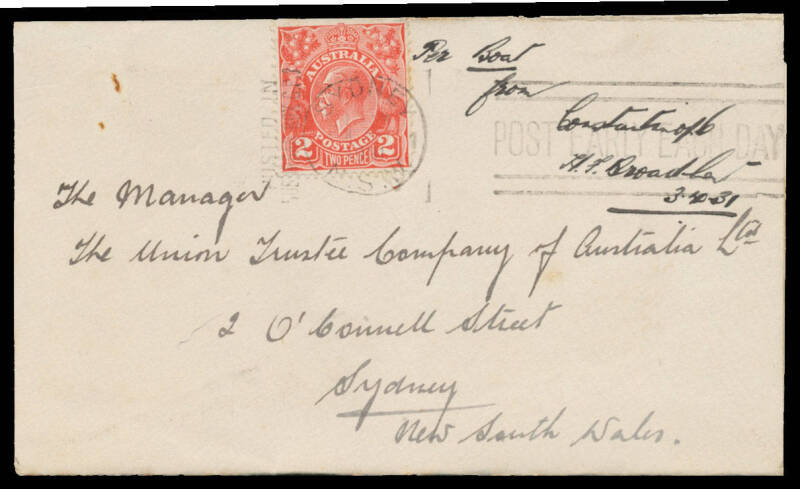 AUSTRALIA
POSTAGE
2 TWO PENCE 2
Per Boat
from
Constantinople
POST EARLY EACH DAY
3.10.31
The Manager
The Union Trustee Company of Australia Ltd
2 O'Connell Street
Sydney
New South Wales.